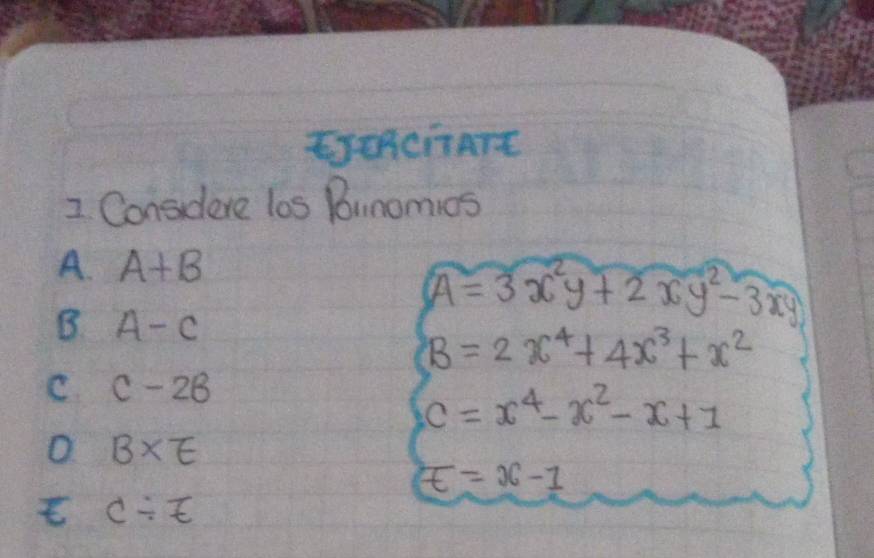 EJERCITATE
1. Considere los Polinomios
A. A+B
B A-C
C C-2B
D B×E
E C÷E
A = 3x²y + 2xy² - 3xy
B = 2x⁴ + 4x³ + x²
C = x⁴ - x² - x + 1
E = x - 1